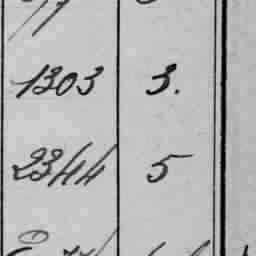 1303 3.
2344 5